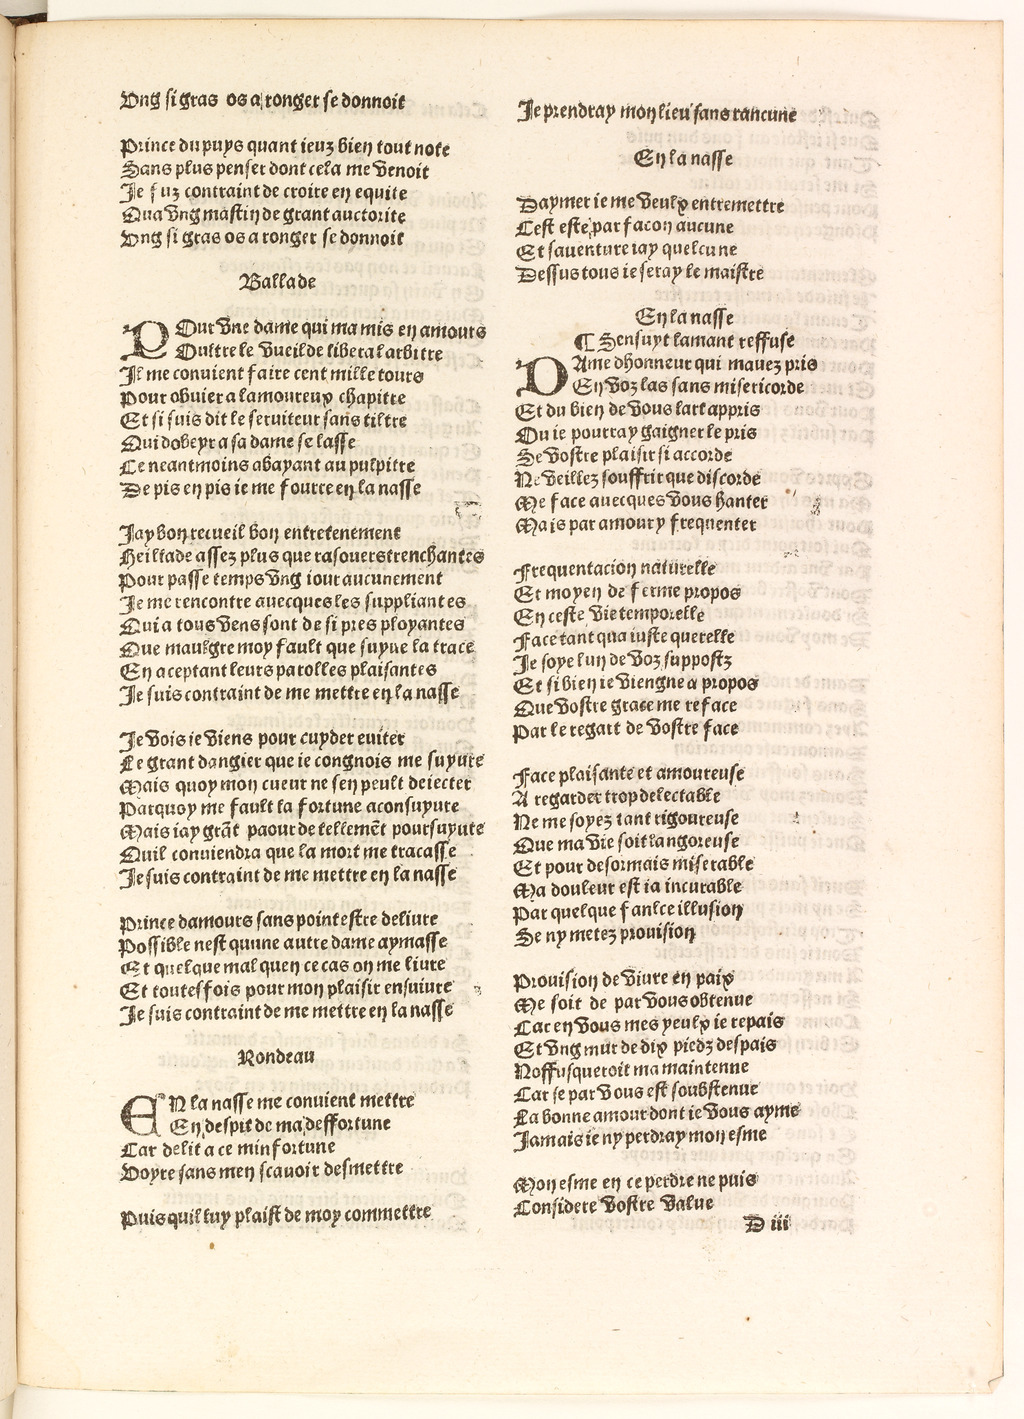 Vng si gras os a ronger se donnoit
Prince du puys quant ieuz bien tout note
Sans plus penser dont cela me venoit
Je fuz contraint de croire en equite
Qua vng mastin de grant auctorite
Vng si gras os a ronger se donnoit
Ballade
POur vne dame qui ma mis en amours
Oultre le vueil de liberal arbitre
Il me convient faire cent mille tours
Pour obuier a lamoureux chapitre
Et si suis dit le seruiteur sans tiltre
Qui dobeyr a sa dame se lasse
Ce neantmoins abayant au pulpitre
De pis en pis ie me fourre en la nasse
Jay bon recueil bon entretenement
Heillade assez plus que rasouers trenchantes
Pour passe temps vng iour aucunement
Je me rencontre auecques les suppliantes
Qui a tous vens sont de si pres ployantes
Que maulgre moy fault que suyue la trace
En aceptant leurs parolles plaisantes
Je suis contraint de me mettre en la nasse
Je vois ie viens pour cuyder euiter
Le grant dangier que ie congnois me suyure
Mais quoy mon cueur ne sen peult deiecter
Parquoy me fault la fortune aconsuyure
Mais iay grãt paour de tellemẽt poursuyure
Quil conuiendra que la mort me tracasse
Je suis contraint de me mettre en la nasse
Prince damours sans point estre deliure
Possible nest quune autre dame aymasse
Et quelque mal quen ce cas on me liure
Et toutesfois pour mon plaisir ensuiure
Je suis contraint de me mettre en la nasse
Rondeau
EN la nasse me conuient mettre
En despit de ma deffortune
Car delit a ce minfortune
Voyre sans men scauoir desmettre
Puis quil luy plaist de moy commettre
Je prendray mon lieu sans rancune
En la nasse
Daymer ie me veulx entremettre
Cest este par facon aucune
Et sauenture iay quelcune
Dessus tous ie seray le maistre
En la nasse
¶ Sensuyt lamant reffuse
DAme dhonneur qui mauez pris
En voz las sans misericorde
Et du bien de vous lart appris
Ou ie pourray gaigner le pris
Se vostre plaisir si accorde
Ne veillez souffrir que discorde
Me face auecques vous hanter
Mais par amour y frequenter
Frequentacion naturelle
Et moyen de ferme propos
En ceste vie temporelle
Face tant qua iuste querelle
Je soye lun de voz suppostz
Et si bien ie viengne a propos
Que vostre grace me reface
Par le regart de vostre face
Face plaisante et amoureuse
A regarder trop delectable
Ne me soyez tant rigoureuse
Que ma vie soit langoreuse
Et pour desormais miserable
Ma douleur est ia incurable
Par quelque fanlce illusion
Se ny metez prouision
Prouision de viure en paix
Me soit de par vous obtenue
Car en vous mes yeulx ie repais
Et vng mur de dix piedz despais
Noffusqueroit ma maintenne
Car se par vous est soubstenue
La bonne amour dont ie vous ayme
Jamais ie ny perdray mon esme
Mon esme en ce perdre ne puis
Considere vostre value
D iii